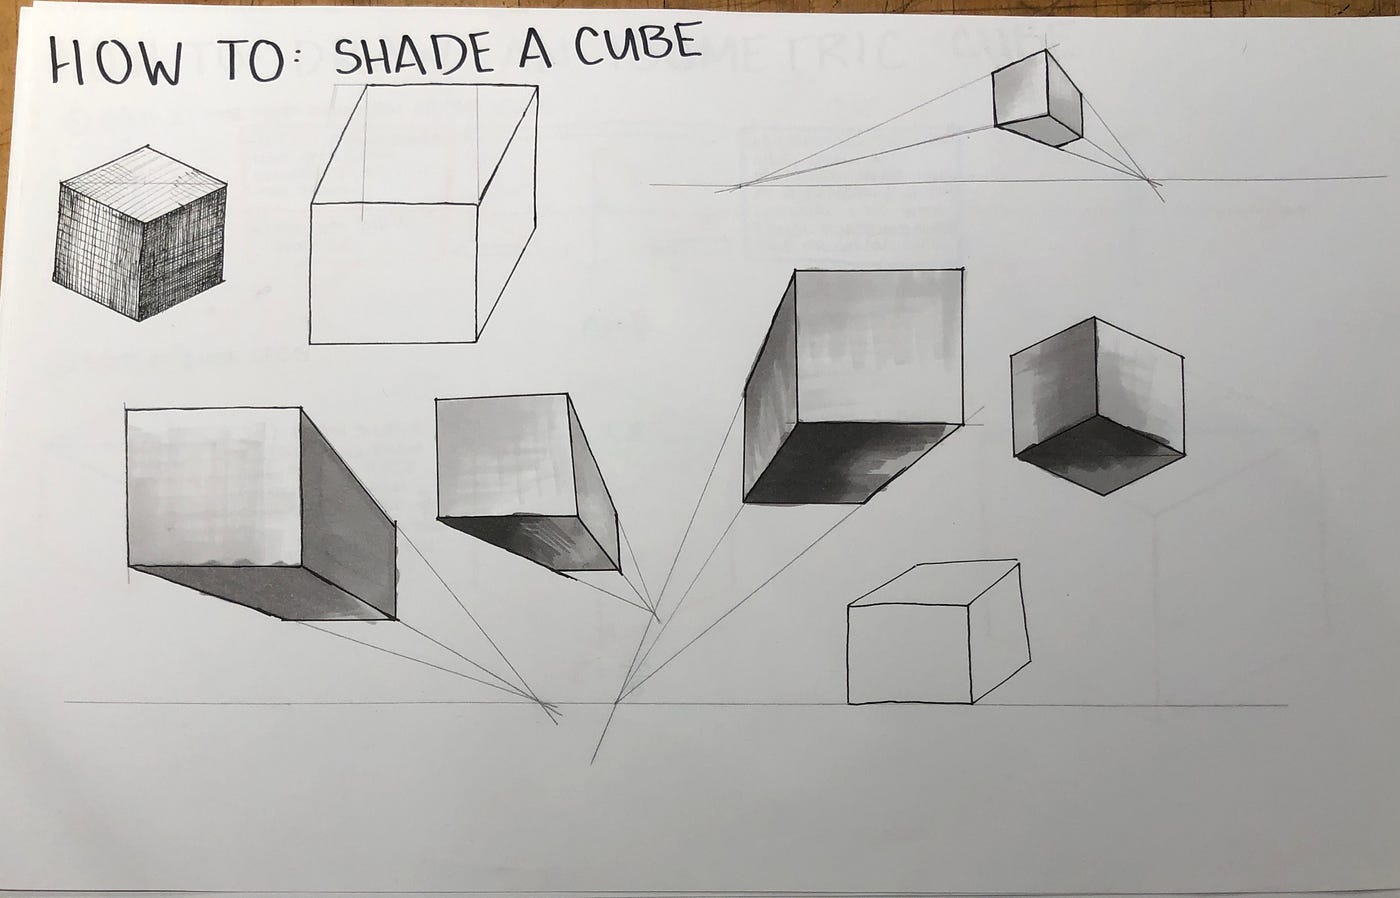 HOW TO: SHADE A CUBE